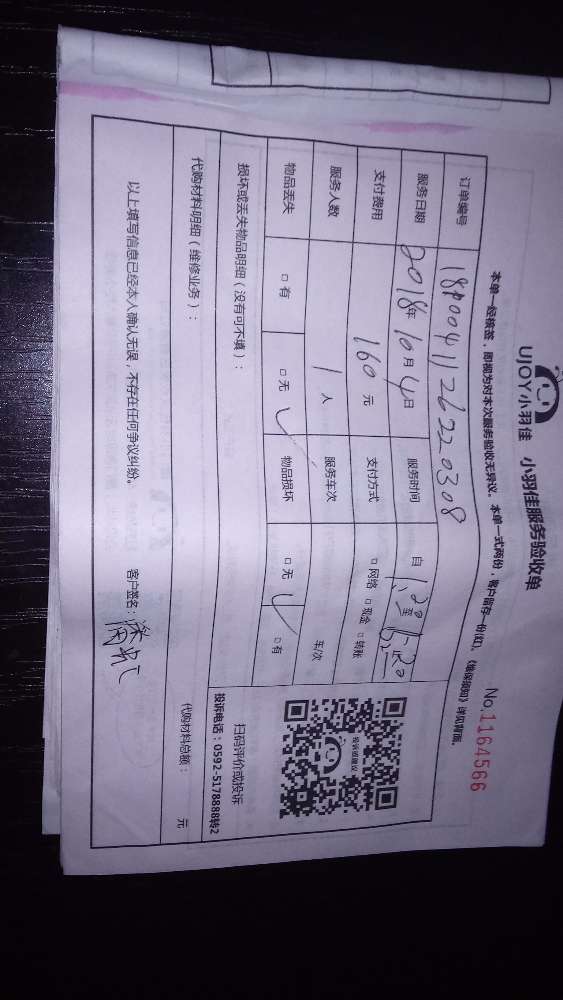 UJOY小羽佳 小羽佳服务验收单
No.1164566
本单一经核签，即视为对本次服务验收无异议。本单一式两份，客户留存一份(红)。《维保须知》详见背面。
订单编号
服务日期 2018年10月4日 服务时间 自 至
支付费用 160元 支付方式 □网络 □现金 □转账
服务人数 1人 服务车次 车/次
物品丢失 □有 □无 ✓ 物品损坏 □无 ✓ □有
损坏或丢失物品明细（没有可不填）：
投诉或建议
扫码评价或投诉
投诉电话：0592-5178888转2
代购材料明细（维修业务）：
代购材料总额： 元
以上填写信息已经本人确认无误，不存在任何争议纠纷。 客户签名：